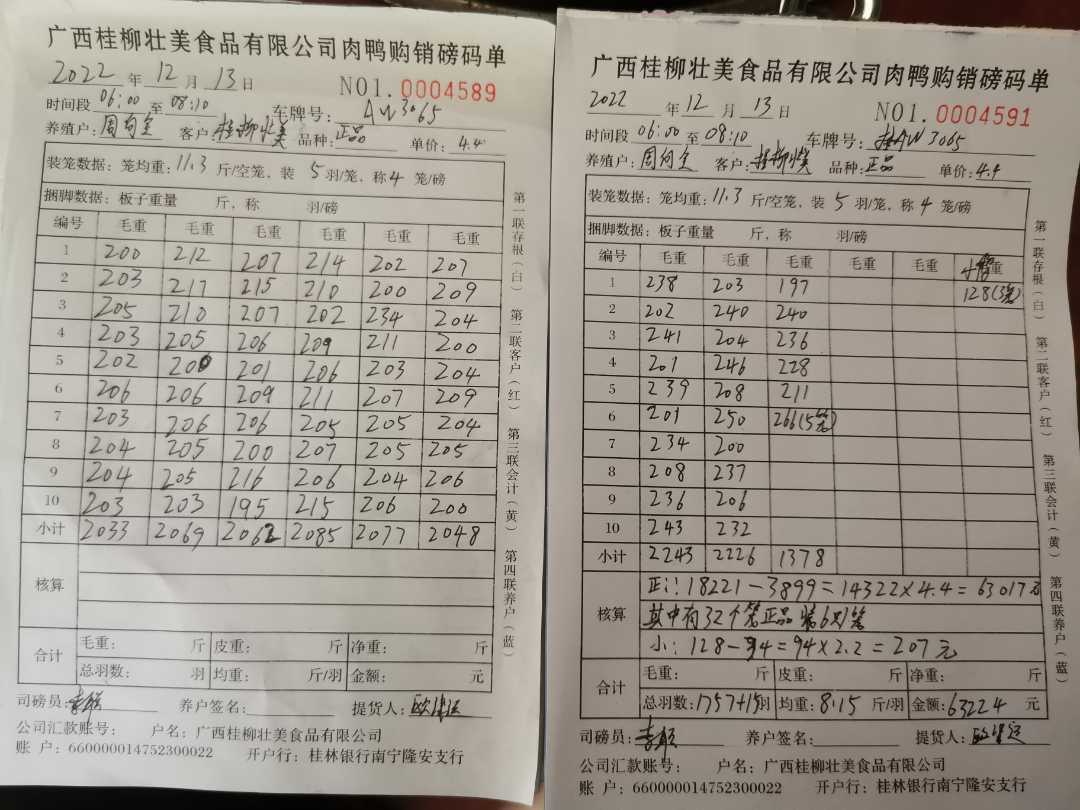 广西桂柳壮美食品有限公司肉鸭购销磅码单
2022 年 12 月 13 日 NO1. 0004589
时间段 06:00 至 08:10 车牌号: AW3065
养殖户: 周向全 客户: 桂柳壮美 品种: 正品 单价: 4.4
装笼数据: 笼均重: 11.3 斤/空笼, 装 5 羽/笼, 称 4 笼/磅
捆脚数据: 板子重量 斤, 称 羽/磅
编号 毛重 毛重 毛重 毛重 毛重 毛重
1 200 212 207 214 202 207
2 203 217 215 210 200 209
3 205 210 207 202 234 204
4 203 205 206 209 211 200
5 202 200 201 206 203 204
6 206 206 209 211 207 209
7 203 206 206 205 205 204
8 204 205 200 207 205 205
9 204 205 216 206 204 206
10 203 203 195 215 206 200
小计 2033 2069 2062 2085 2077 2048
核算
合计 毛重: 斤 皮重: 斤 净重: 斤
总羽数: 羽 均重: 斤/羽 金额: 元
司磅员: 养户签名: 提货人:
公司汇款账号: 户名: 广西桂柳壮美食品有限公司
账 户: 660000014752300022 开户行: 桂林银行南宁隆安支行
第一联存根(白) 第二联客户(红) 第三联会计(黄) 第四联养户(蓝)
广西桂柳壮美食品有限公司肉鸭购销磅码单
2022 年 12 月 13 日 NO1. 0004591
时间段 06:00 至 08:10 车牌号: 桂AW3065
养殖户: 周向全 客户: 桂柳壮美 品种: 正品 单价: 4.4
装笼数据: 笼均重: 11.3 斤/空笼, 装 5 羽/笼, 称 4 笼/磅
捆脚数据: 板子重量 斤, 称 羽/磅
编号 毛重 毛重 毛重 毛重 毛重 毛重
1 238 203 197 128(3笼)
2 202 240 240
3 241 204 236
4 201 246 228
5 239 208 211
6 201 250 266(5笼)
7 234 200
8 208 237
9 236 206
10 243 232
小计 2243 2226 1378
核算 正: 18221-3899=14322×4.4=63017元
其中有32个笼正品装6只/笼
小: 128-34=94×2.2=207元
合计 毛重: 斤 皮重: 斤 净重: 斤
总羽数: 1757+15羽 均重: 8.15 斤/羽 金额: 63224 元
司磅员: 养户签名: 提货人:
公司汇款账号: 户名: 广西桂柳壮美食品有限公司
账 户: 660000014752300022 开户行: 桂林银行南宁隆安支行
第一联存根(白) 第二联客户(红) 第三联会计(黄) 第四联养户(蓝)